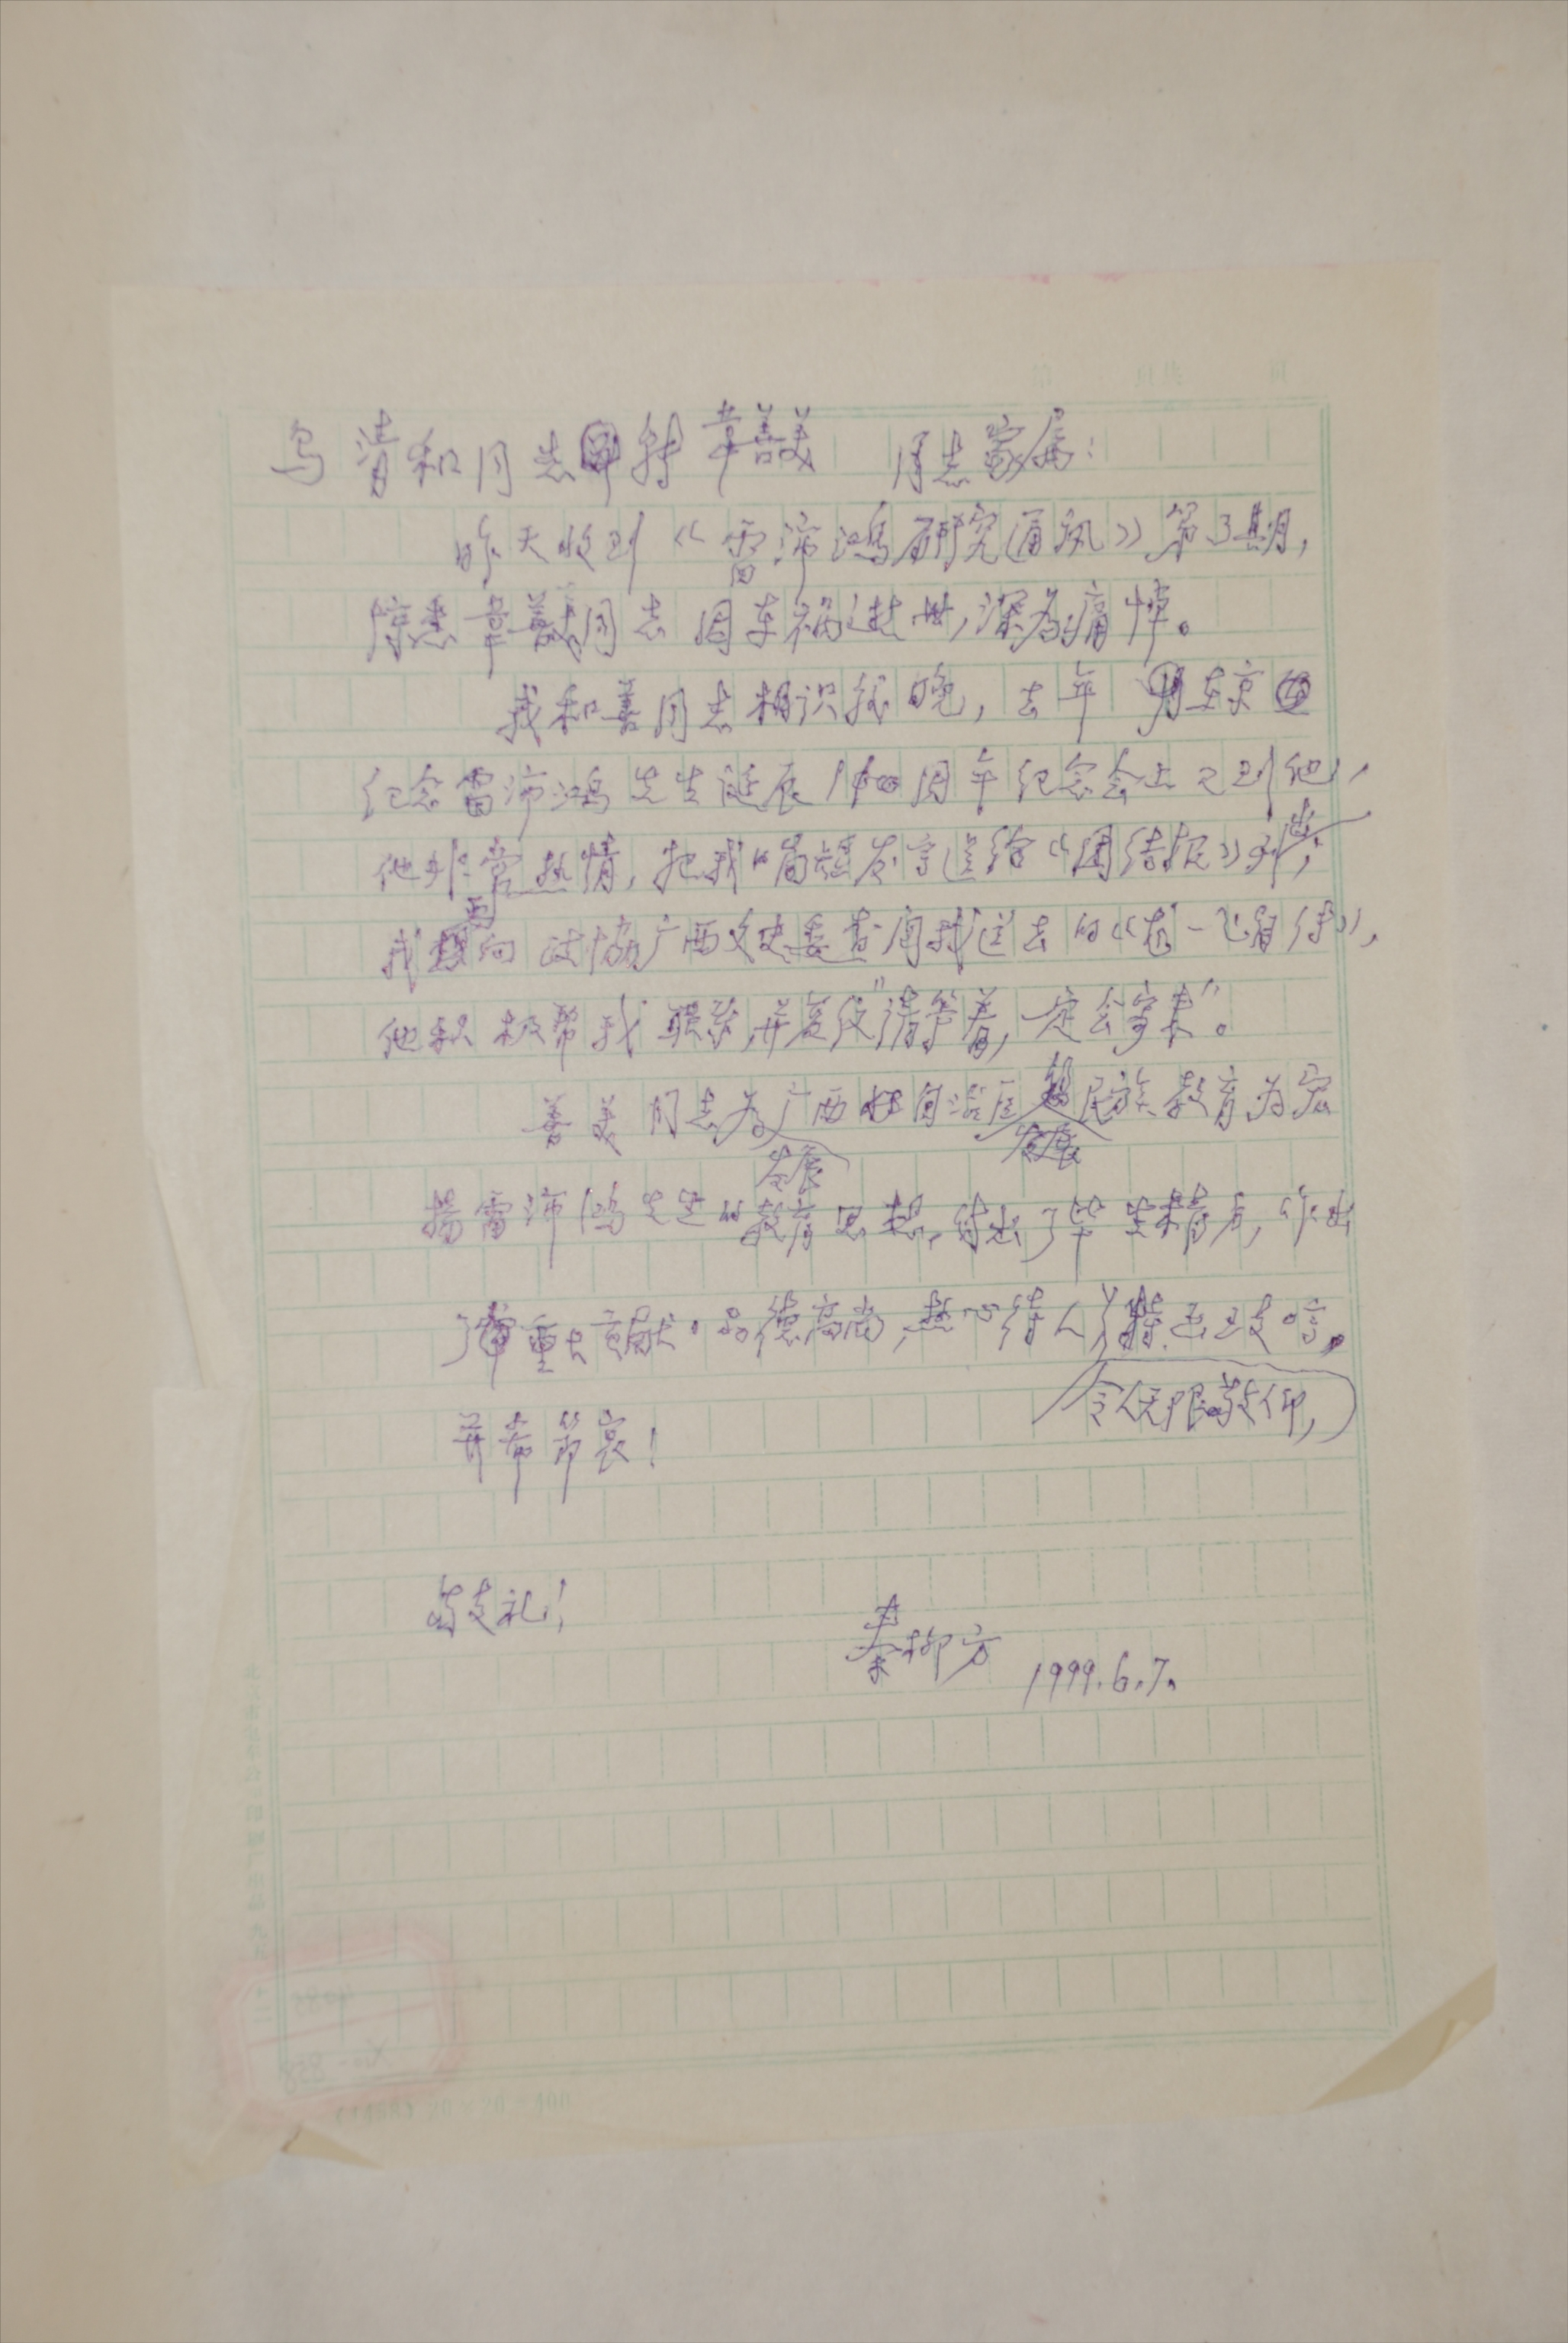 清和同志转韦善美 同志家属：
昨天收到《雷沛鸿研究通讯》第3期，
惊悉韦善美同志因车祸逝世，深为痛悼。
我和善同志相识很晚，去年 月在京
纪念雷沛鸿先生诞辰110周年纪念会上见到他，
他非常热情，把我的简短发言送给《团结报》刊出，
我再向政协广西文史委查询我送去的《 传》，
他积极帮我联系，并复信"请等着，一定会寄来"。
善美同志为广西 自治区发展民族教育为宏
扬雷沛鸿先生的发展教育思想，付出了毕生精力，作出
了重大贡献。品德高尚，热心待人，令人无限敬仰，特此致唁。
并希节哀！
敬礼！
秦柳方
1999.6.7.
(1458) 20×20=400